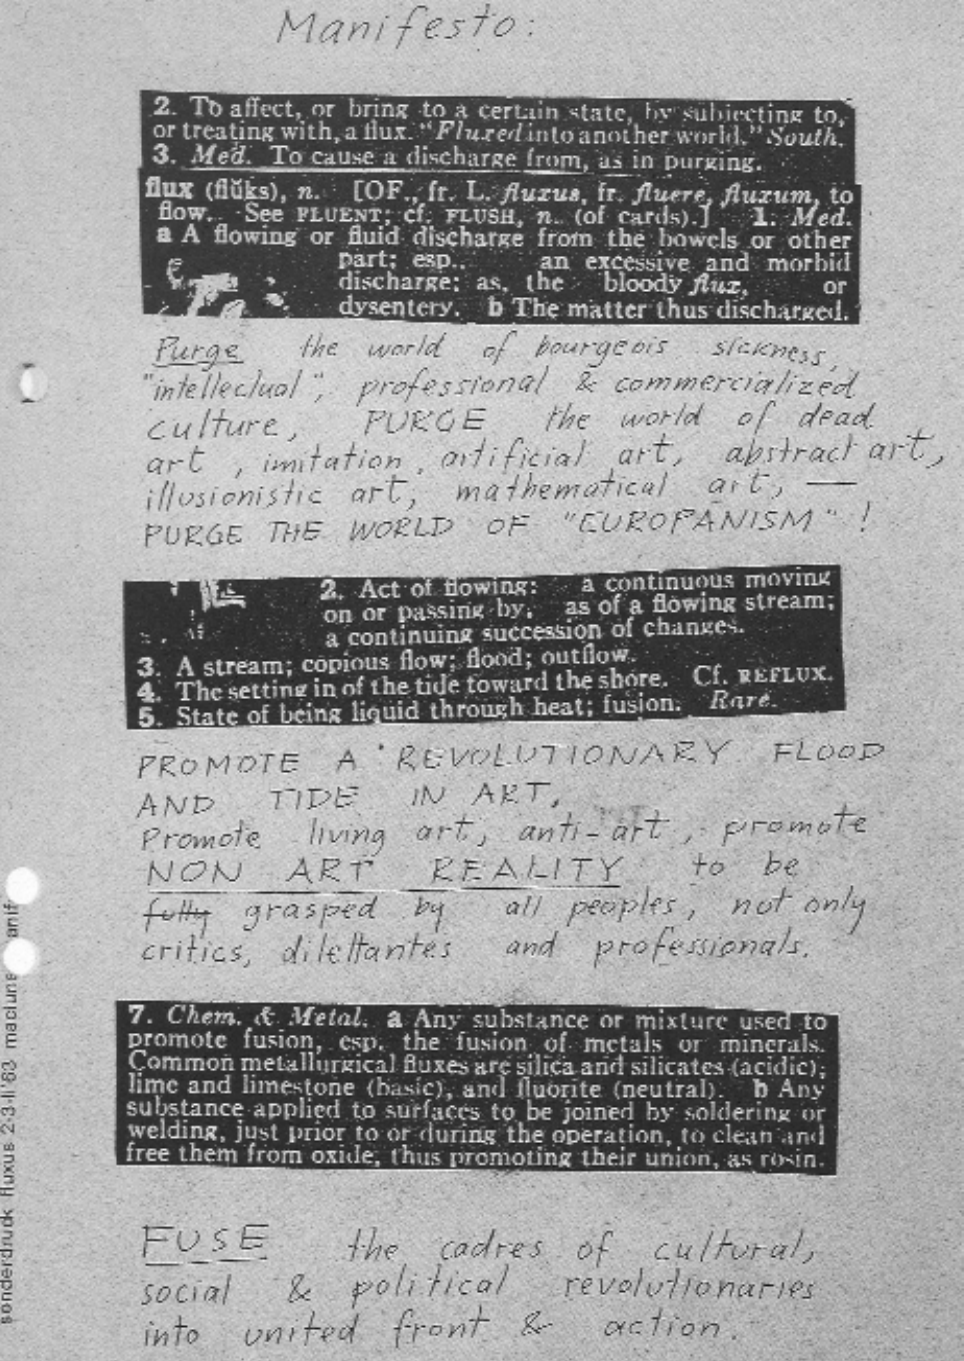 Manifesto:
2. To affect, or bring to a certain state, by subjecting to,
or treating with, a flux. "Fluxed into another world." South.
3. Med. To cause a discharge from, as in purging.
flux (flŭks), n. [OF., fr. L. fluxus, fr. fluere, fluxum, to
flow. See FLUENT; cf. FLUSH, n. (of cards).] 1. Med.
a A flowing or fluid discharge from the bowels or other
part; esp., an excessive and morbid
discharge; as, the bloody flux, or
dysentery. b The matter thus discharged.
Purge the world of bourgeois sickness,
"intellectual", professional & commercialized
culture, PURGE the world of dead
art, imitation, artificial art, abstract art,
illusionistic art, mathematical art, —
PURGE THE WORLD OF "EUROPANISM"!
2. Act of flowing: a continuous moving
on or passing by, as of a flowing stream;
a continuing succession of changes.
3. A stream; copious flow; flood; outflow.
4. The setting in of the tide toward the shore. Cf. REFLUX.
5. State of being liquid through heat; fusion. Rare.
PROMOTE A REVOLUTIONARY FLOOD
AND TIDE IN ART,
Promote living art, anti-art, promote
NON ART REALITY to be
fully grasped by all peoples, not only
critics, dilettantes and professionals.
7. Chem. & Metal. a Any substance or mixture used to
promote fusion, esp. the fusion of metals or minerals.
Common metallurgical fluxes are silica and silicates (acidic);
lime and limestone (basic), and fluorite (neutral). b Any
substance applied to surfaces to be joined by soldering or
welding, just prior to or during the operation, to clean and
free them from oxide, thus promoting their union, as rosin.
FUSE the cadres of cultural,
social & political revolutionaries
into united front & action.
sonderdruck fluxus 2-3-II'63 maciunas